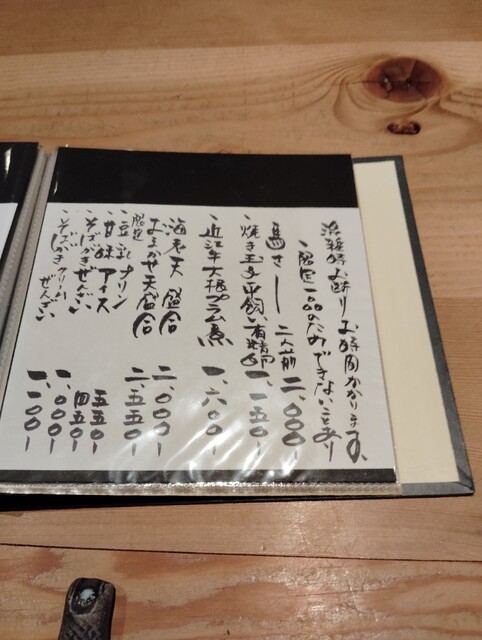 混雑時お断りお時間かかります。
、限定一品のためできないことあり
馬さし 二人前 二、〇〇〇-
、焼き玉子 平飼い有精卵 一、一五〇-
、近江牛大根プラム煮 一、六〇〇-
海老天盛合 二、〇〇〇-
限定 おまかせ天盛合 二、五五〇-
、豆乳プリン 五五〇-
、甘味アイス 四五〇-
、そばがきぜんざい 一、〇〇〇-
、そばがきクリームぜんざい 一、一〇〇-